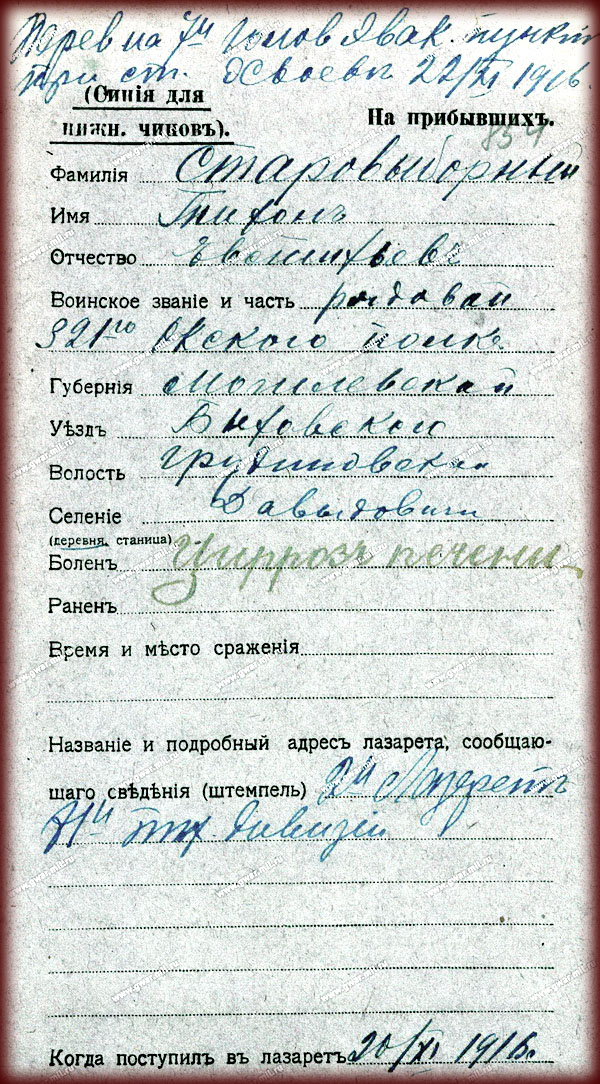 на 7й Голов Эвак. пункт
при ст. 22/XI 1916
(Синія для
нижн. чиновъ).
На прибывшихъ.
854
Фамилія Старовыборный
Имя Тихонъ
Отчество
Воинское званіе и часть рядовой
321го Окского полка
Губернія Могилевской
Уѣздъ Быховского
Волость Грудиновской
Селеніе Давыдовичи
(деревня, станица)
Боленъ Циррозъ печени
Раненъ
Время и мѣсто сраженія
Названіе и подробный адресъ лазарета, сообщаю-
щаго свѣдѣнія (штемпель) 2й Лазаретъ
71й пѣх. дивизіи
Когда поступилъ въ лазаретъ 20/XI 1916.